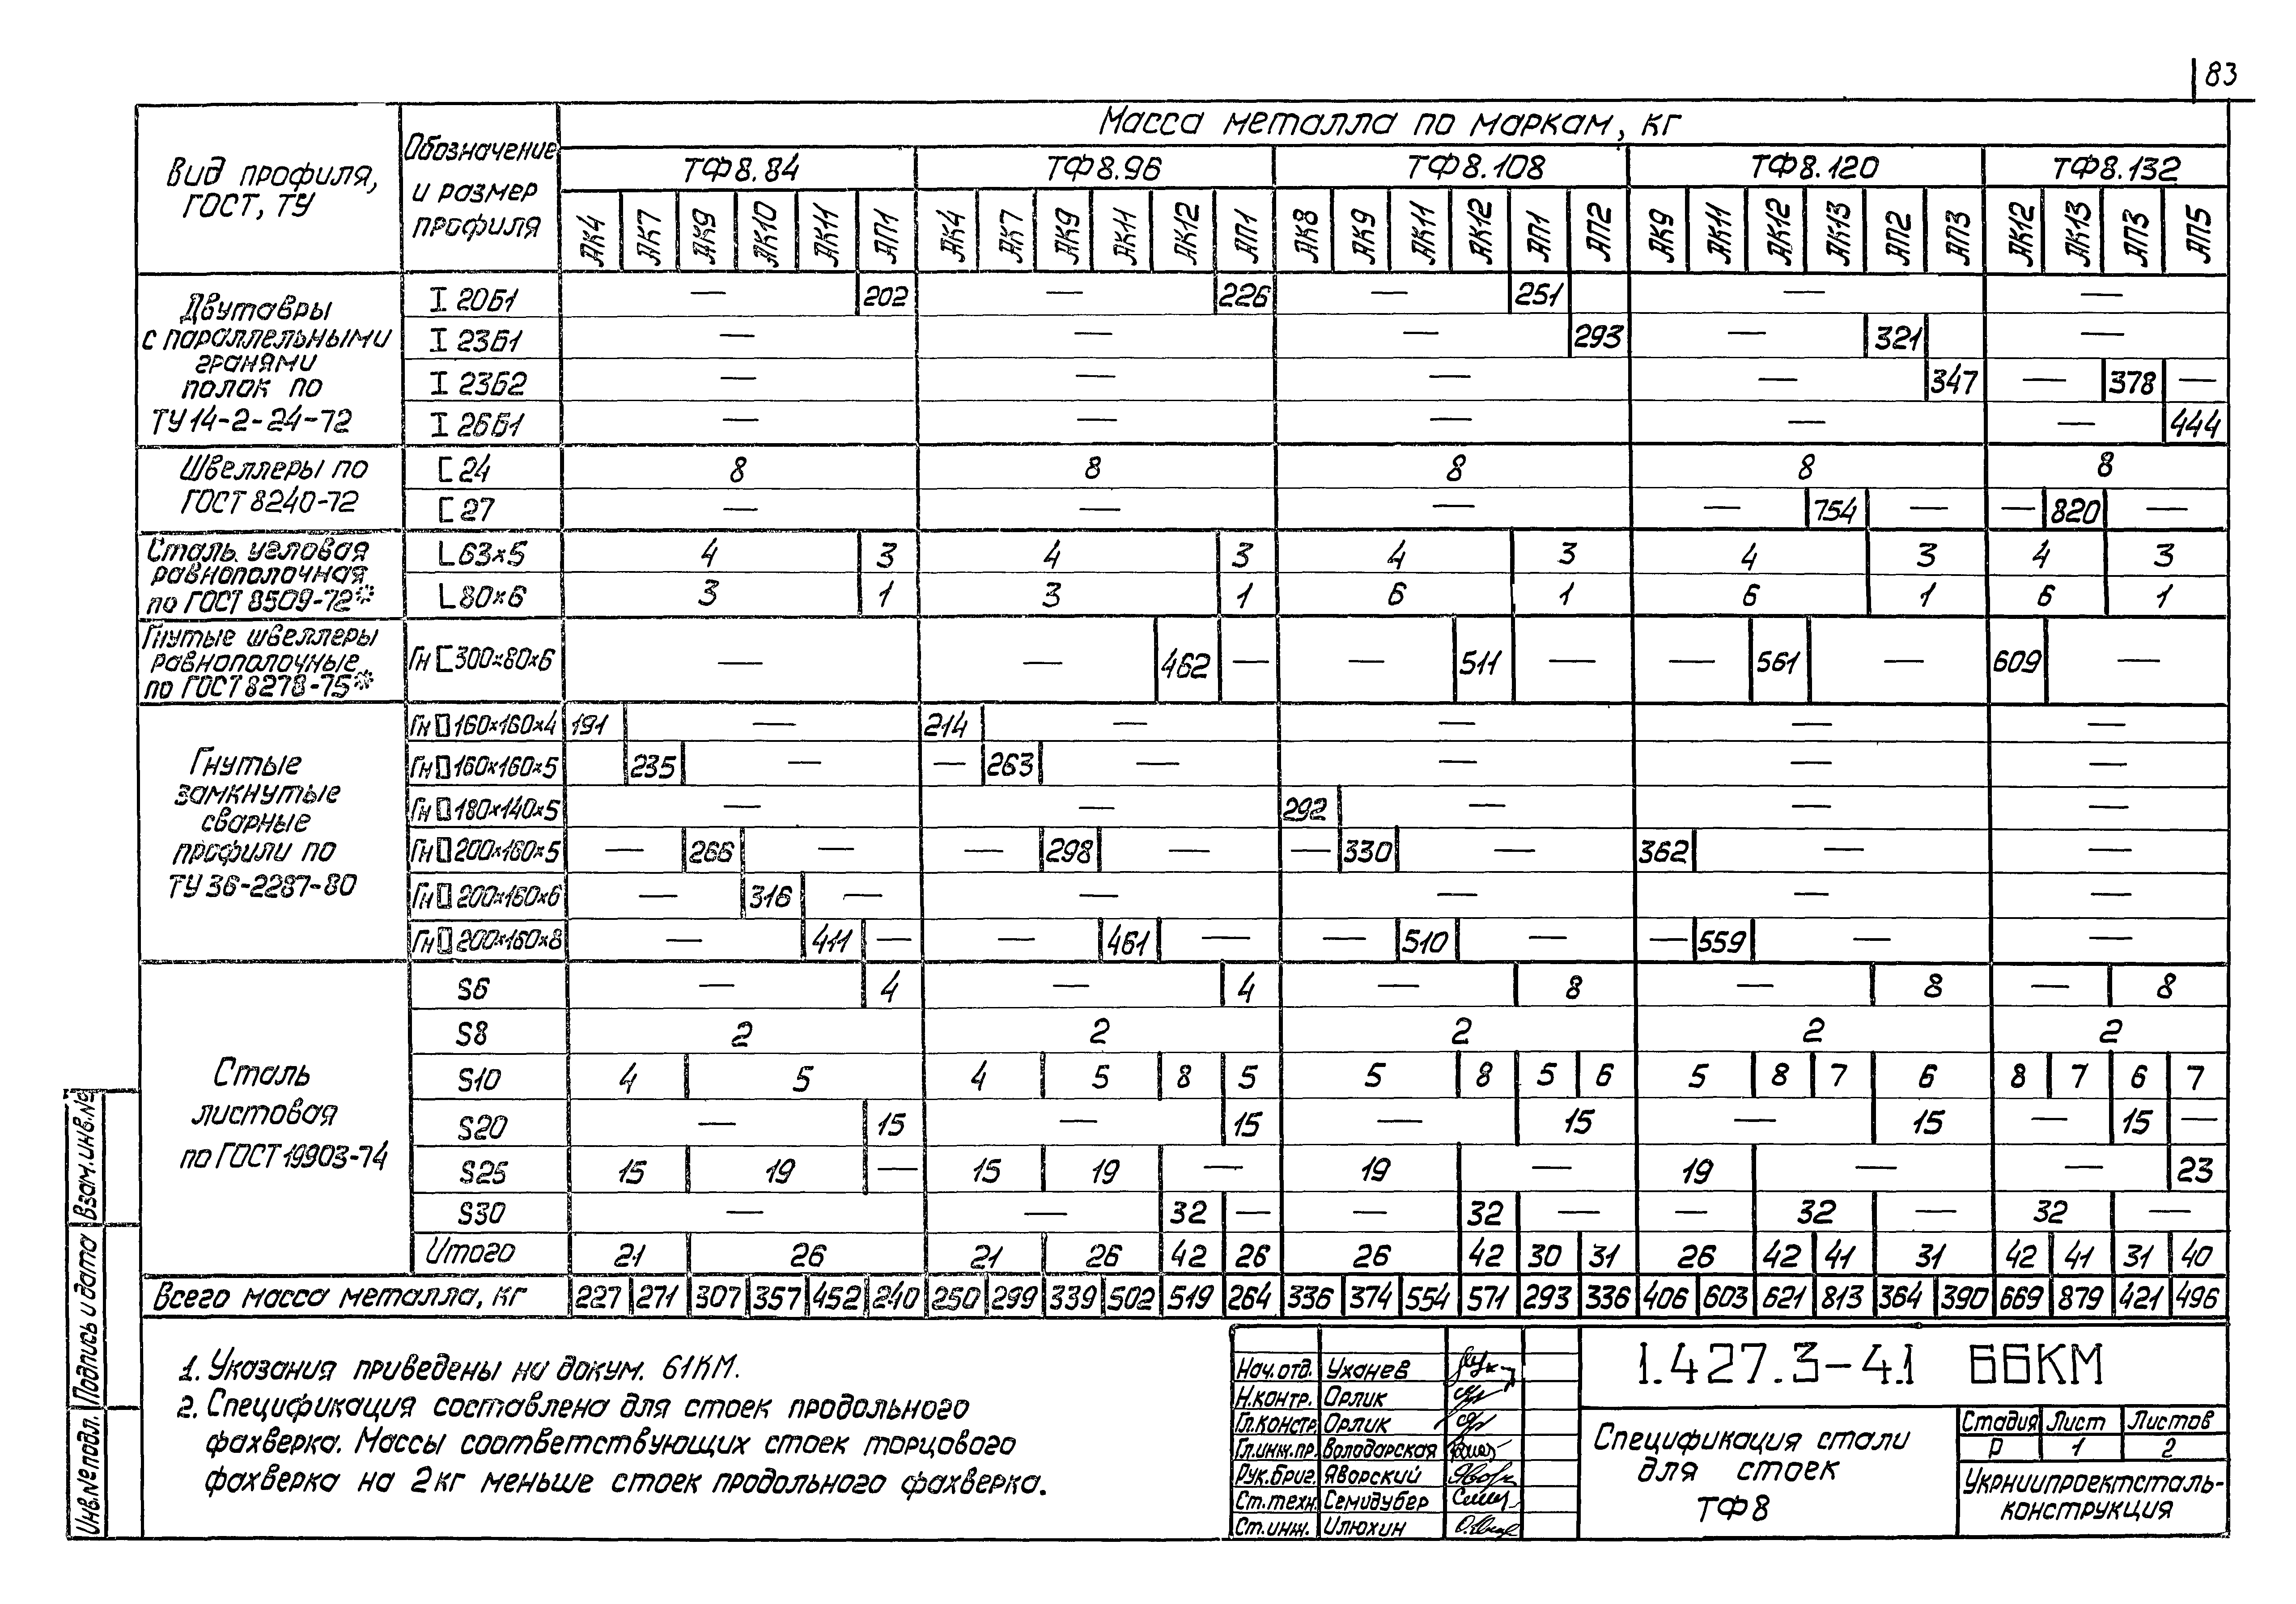 83
Масса металла по маркам, кг
Вид профиля, ГОСТ, ТУ
Обозначение и размер профиля
ТФ8.84 ТФ8.96 ТФ8.108 ТФ8.120 ТФ8.132
АК4 АК7 АК9 АК10 АК11 АП1 АК4 АК7 АК9 АК11 АК12 АП1 АК8 АК9 АК11 АК12 АП1 АП2 АК9 АК11 АК12 АК13 АП2 АП3 АК12 АК13 АП3 АП5
Двутавры
с параллельными
гранями
полок по
ТУ 14-2-24-72
I 20Б1 — 202 — 226 — 251 — —
I 23Б1 — — — 293 — 321 —
I 23Б2 — — — — 347 — 378 —
I 26Б1 — — — — — 444
Швеллеры по
ГОСТ 8240-72
[ 24 8 8 8 8 8
[ 27 — — — — 754 — — 820 —
Сталь угловая
равнополочная
по ГОСТ 8509-72*
L 63×5 4 3 4 3 4 3 4 3 4 3
L 80×6 3 1 3 1 6 1 6 1 6 1
Гнутые швеллеры
равнополочные
по ГОСТ 8278-75*
Гн [ 300×80×6 — — 462 — — 511 — — 561 — 609 —
Гнутые
замкнутые
сварные
профили по
ТУ 36-2287-80
Гн □ 160×160×4 191 — 214 — — — —
Гн □ 160×160×5 235 — — 263 — — — —
Гн □ 180×140×5 — — 292 — — —
Гн □ 200×160×5 — 266 — — 298 — — 330 — 362 — —
Гн □ 200×160×6 — 316 — — — — —
Гн □ 200×160×8 — 411 — — 461 — — 510 — — 559 — —
Сталь
листовая
по ГОСТ 19903-74
S6 — 4 — 4 — 8 — 8 — 8
S8 2 2 2 2 2
S10 4 5 4 5 8 5 5 8 5 6 5 8 7 6 8 7 6 7
S20 — 15 — 15 — 15 — 15 — 15 —
S25 15 19 — 15 19 — 19 — 19 — — 23
S30 — — 32 — — 32 — — 32 — 32 —
Итого 21 26 21 26 42 26 26 42 30 31 26 42 41 31 42 41 31 40
Всего масса металла, кг 227 271 307 357 452 240 250 299 339 502 519 264 336 374 554 571 293 336 406 603 621 813 364 390 669 879 421 496
1. Указания приведены на докум. 61КМ.
2. Спецификация составлена для стоек продольного
фахверка. Массы соответствующих стоек торцового
фахверка на 2 кг меньше стоек продольного фахверка.
Нач.отд. Уханев
Н.контр. Орлик
Гл.констр. Орлик
Гл.инж.пр. Володарская
Рук.бриг. Яворский
Ст.техн. Семидубер
Ст.инж. Илюхин
1.427.3-4.1 66КМ
Спецификация стали
для стоек
ТФ8
Стадия Лист Листов
Р 1 2
Укрниипроектсталь-
конструкция
Взам.инв.№
Подпись и дата
Инв.№ подл.